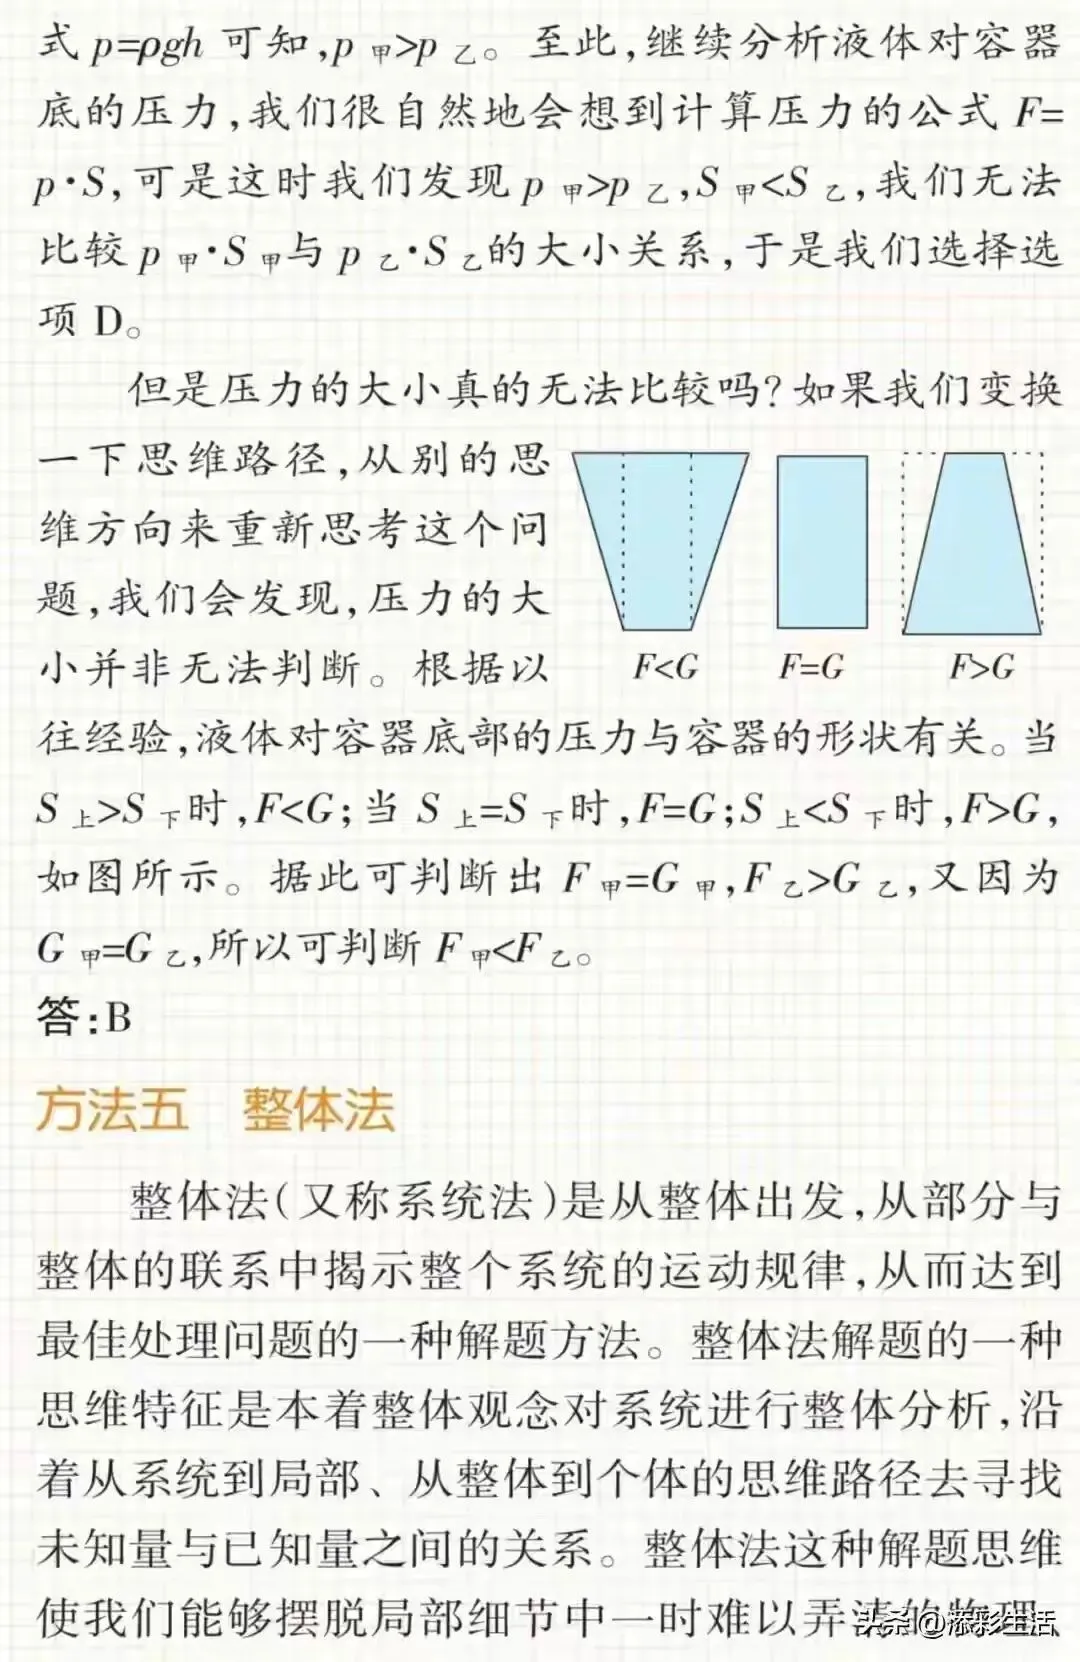 式 p=ρgh 可知,p 甲>p 乙。至此,继续分析液体对容器
底的压力,我们很自然地会想到计算压力的公式 F=
p·S,可是这时我们发现 p 甲>p 乙,S 甲<S 乙,我们无法
比较 p 甲·S 甲与 p 乙·S 乙的大小关系,于是我们选择选
项 D。
但是压力的大小真的无法比较吗?如果我们变换
一下思维路径,从别的思
维方向来重新思考这个问
题,我们会发现,压力的大
小并非无法判断。根据以
F<G F=G F>G
往经验,液体对容器底部的压力与容器的形状有关。当
S 上>S 下时,F<G;当 S 上=S 下时,F=G;S 上<S 下时,F>G,
如图所示。据此可判断出 F 甲=G 甲,F 乙>G 乙,又因为
G 甲=G 乙,所以可判断 F 甲<F 乙。
答:B
方法五 整体法
整体法(又称系统法)是从整体出发,从部分与
整体的联系中揭示整个系统的运动规律,从而达到
最佳处理问题的一种解题方法。整体法解题的一种
思维特征是本着整体观念对系统进行整体分析,沿
着从系统到局部、从整体到个体的思维路径去寻找
未知量与已知量之间的关系。整体法这种解题思维
使我们能够摆脱局部细节中一时难以弄清的物理
头条@添彩生活